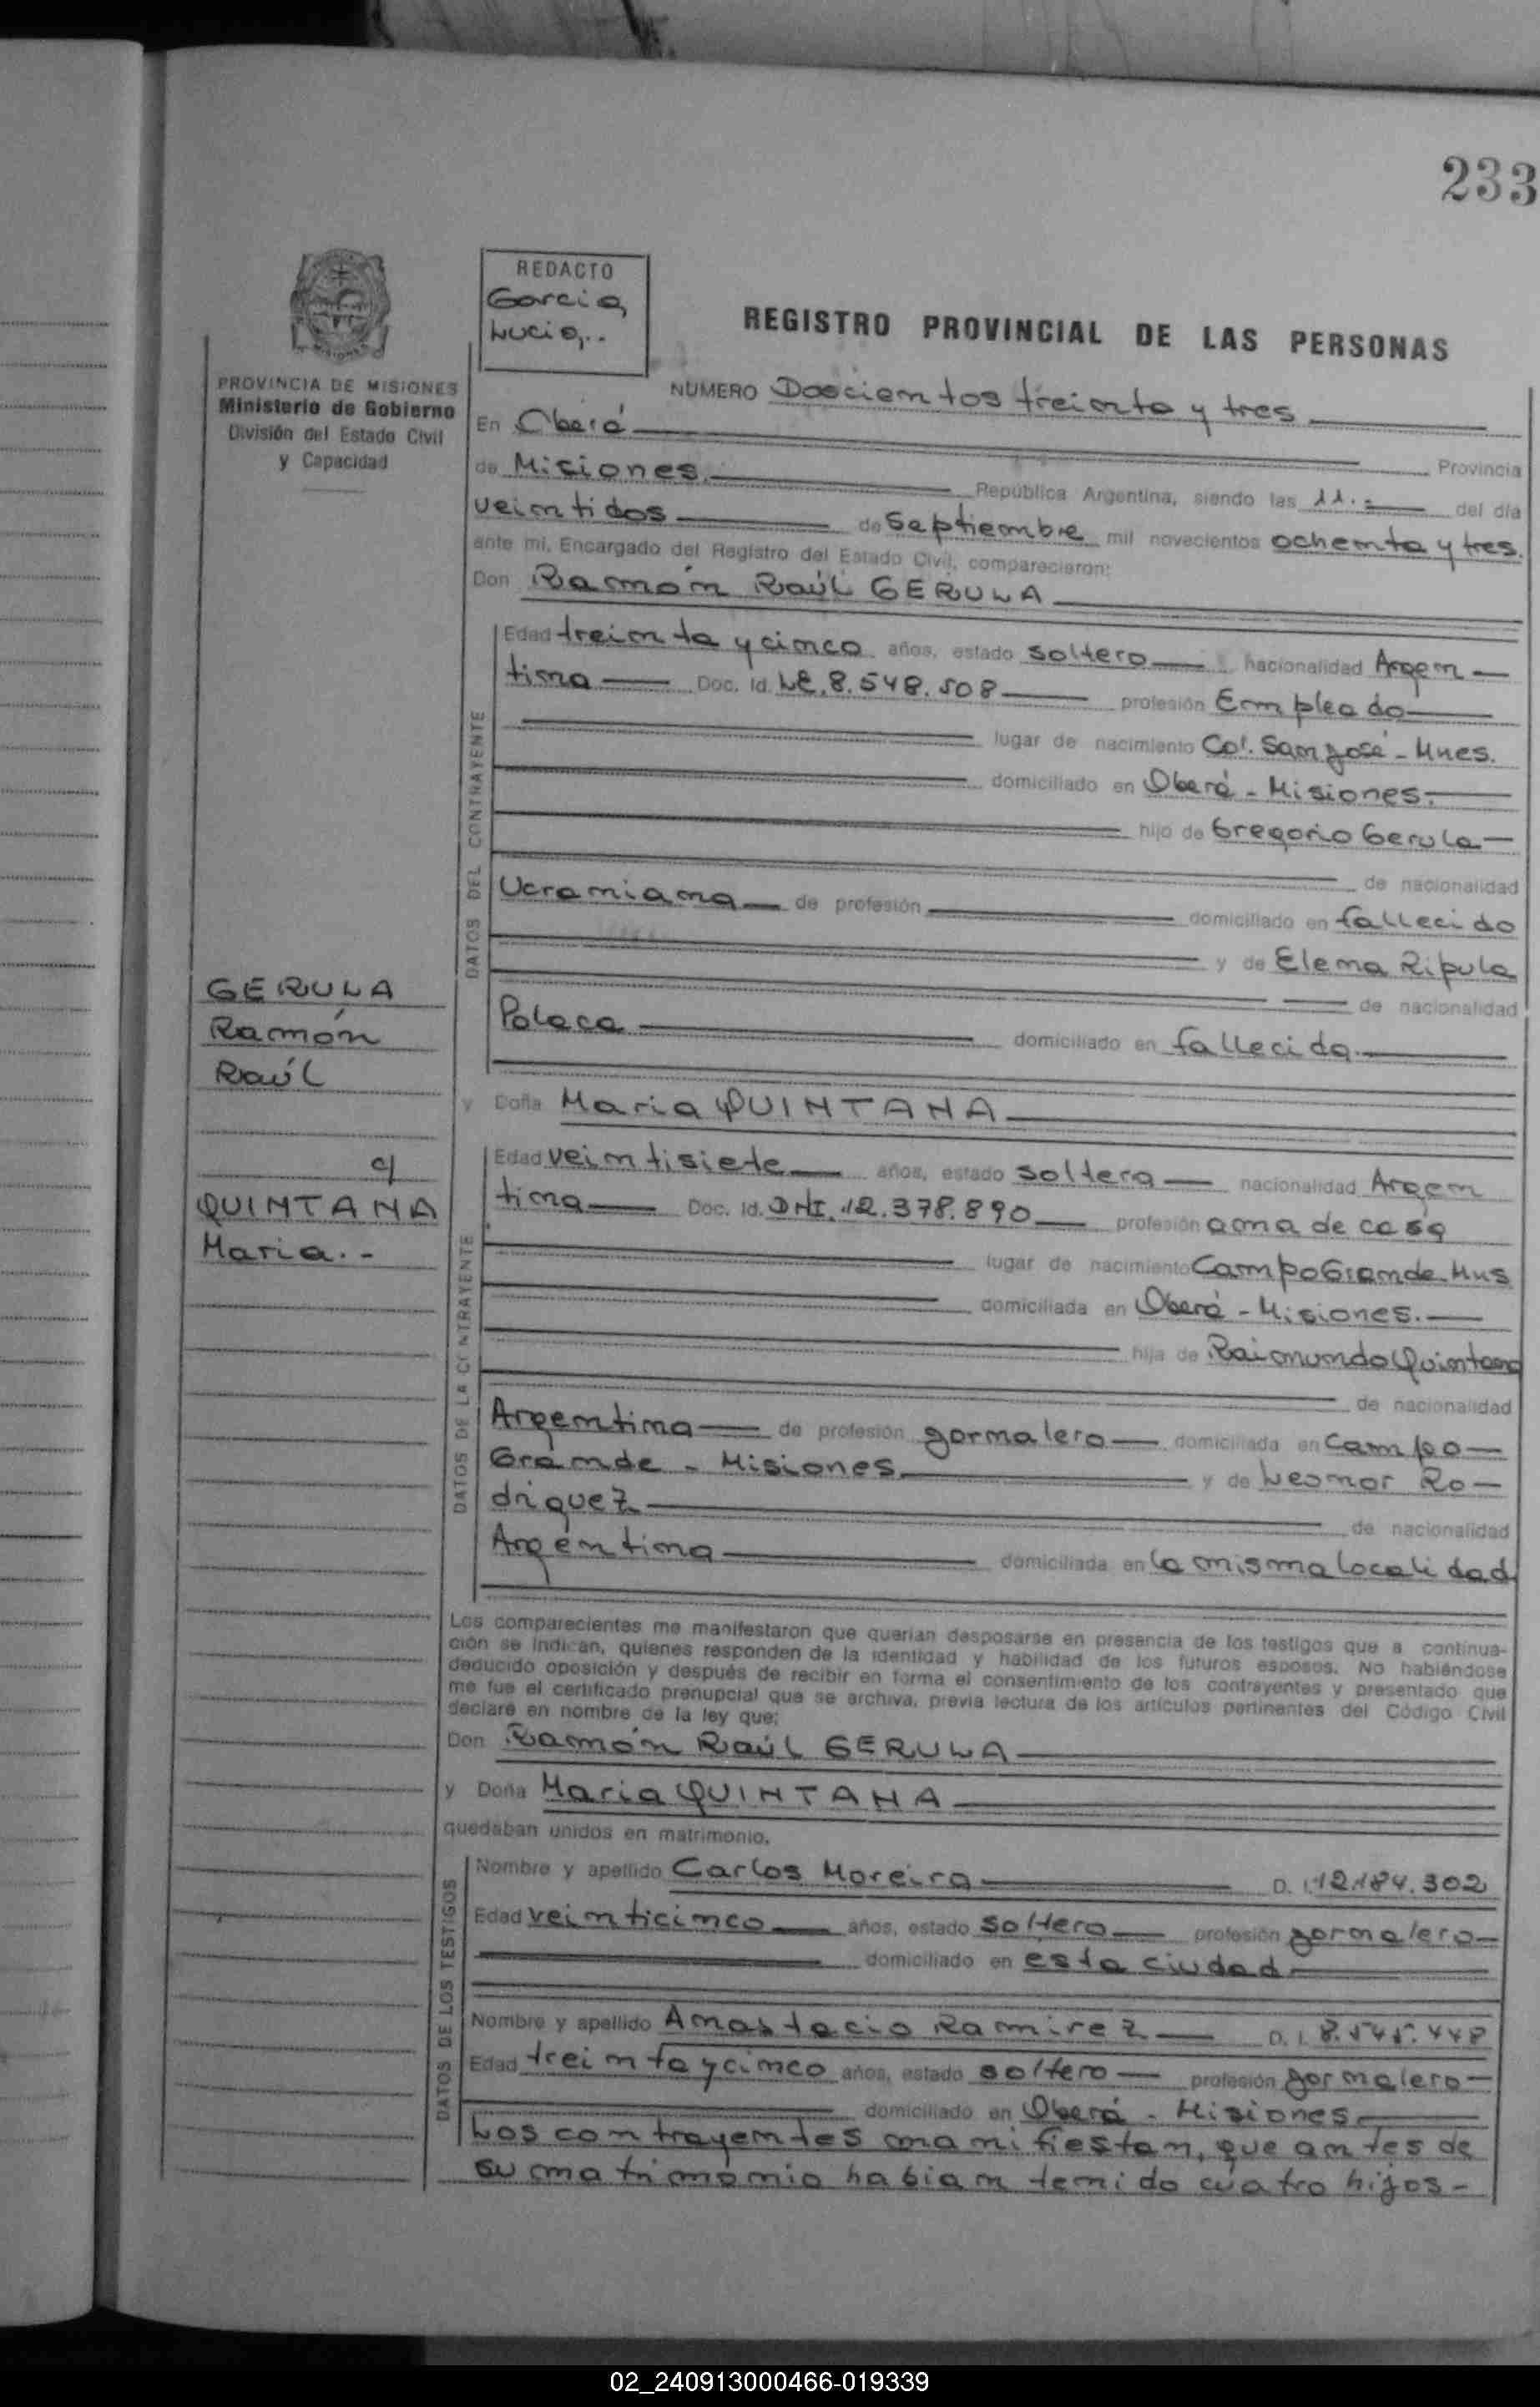 233
REDACTO
Garcia,
Lucia,..
REGISTRO PROVINCIAL DE LAS PERSONAS
PROVINCIA DE MISIONES
Ministerio de Gobierno
División del Estado Civil
y Capacidad
NUMERO Doscientos treinta y tres
En Oberá Provincia
de Misiones. República Argentina, siendo las 11.- del día
veintidos de Septiembre mil novecientos ochenta y tres.
ante mi, Encargado del Registro del Estado Civil, comparecieron:
Don Ramón Raúl GERULA
DATOS DEL CONTRAYENTE
Edad treinta y cinco años, estado soltero nacionalidad Argen-
tina Doc. Id. LE.8.548.508 profesión Empleado
lugar de nacimiento Col. San José - Mnes.
domiciliado en Oberá - Misiones.
hijo de Gregorio Gerula
de nacionalidad
Ucraniana de profesión domiciliado en fallecido
y de Elena Ripula
de nacionalidad
Polaca domiciliado en fallecida.
GERULA
Ramón
Raúl
c/
QUINTANA
Maria.-
y Doña Maria QUINTANA
DATOS DE LA CONTRAYENTE
Edad veintisiete años, estado soltera nacionalidad Argen
tina Doc. Id. DNI.12.378.890 profesión ama de casa
lugar de nacimiento Campo Grande. Mns
domiciliada en Oberá - Misiones.
hija de Raimundo Quintana
de nacionalidad
Argentina de profesión jornalero domiciliada en Campo
Grande - Misiones. y de Leonor Ro-
driguez
de nacionalidad
Argentina domiciliada en la misma localidad
Los comparecientes me manifestaron que querían desposarse en presencia de los testigos que a continua-
ción se indican, quienes responden de la identidad y habilidad de los futuros esposos. No habiéndose
deducido oposición y después de recibir en forma el consentimiento de los contrayentes y presentado que
me fue el certificado prenupcial que se archiva, previa lectura de los artículos pertinentes del Código Civil
declaré en nombre de la ley que:
Don Ramón Raúl GERULA
y Doña Maria QUINTANA
quedaban unidos en matrimonio.
DATOS DE LOS TESTIGOS
Nombre y apellido Carlos Moreira D. I. 12.184.302
Edad veinticinco años, estado soltero profesión jornalero
domiciliado en esta ciudad
Nombre y apellido Anastacio Ramirez D. I. 8.545.448
Edad treinta y cinco años, estado soltero profesión jornalero
domiciliado en Oberá - Misiones
Los contrayentes manifiestan, que antes de
su matrimonio habian tenido cuatro hijos-
02_240913000466-019339